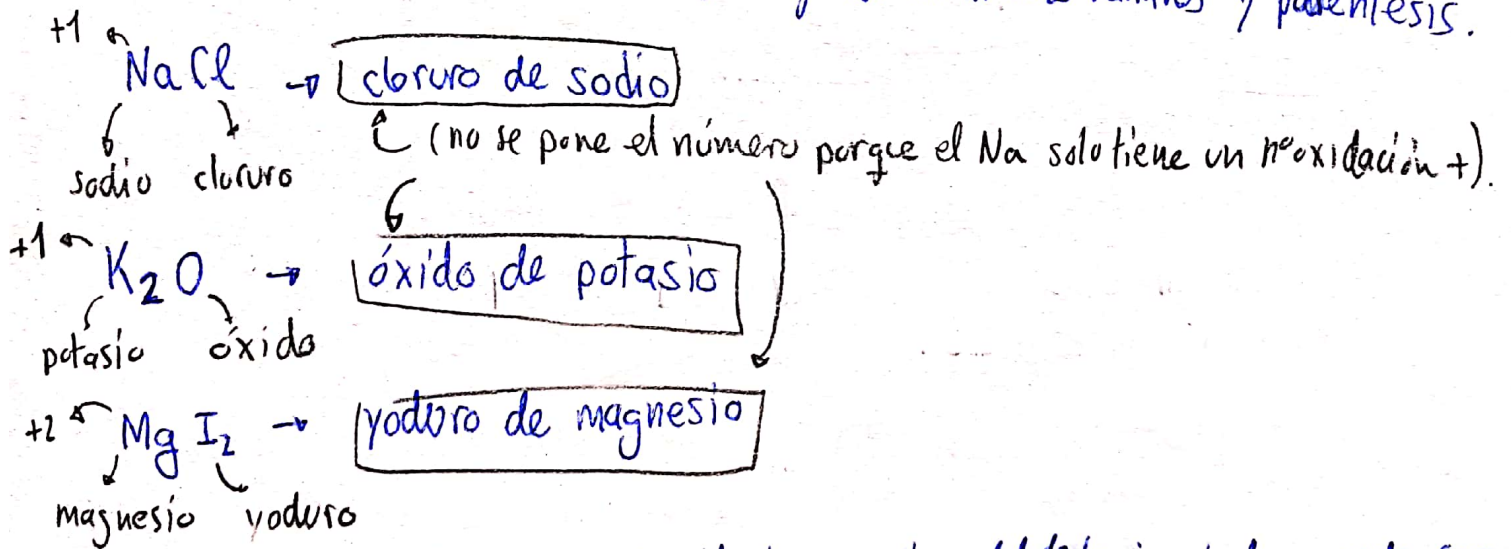 y paréntesis.
+1
NaCl → cloruro de sodio
(no se pone el número porque el Na solo tiene un nº oxidación +).
sodio cloruro
+1
K₂O → óxido de potasio
potasio óxido
+2 MgI₂ → yoduro de magnesio
magnesio yoduro